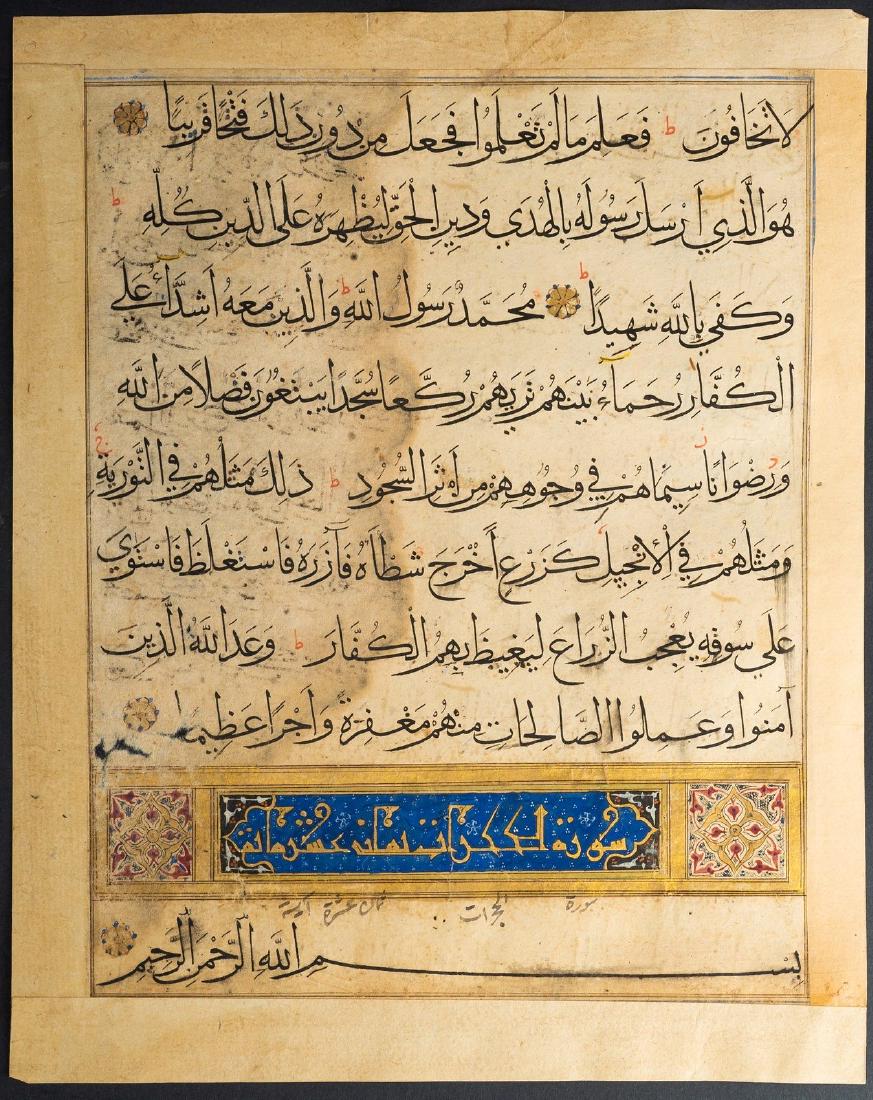 لَا تَخَافُونَ ط فَعَلِمَ مَا لَمْ تَعْلَمُوا فَجَعَلَ مِنْ دُونِ ذَلِكَ فَتْحًا قَرِيبًا
هُوَ الَّذِي أَرْسَلَ رَسُولَهُ بِالْهُدَي وَدِينِ الْحَقِّ لِيُظْهِرَهُ عَلَى الدِّينِ كُلِّهِ ط
وَكَفَي بِاللَّهِ شَهِيدًا ط مُحَمَّدٌ رَسُولُ اللَّهِ ط وَالَّذِينَ مَعَهُ أَشِدَّاءُ عَلَي
الْكُفَّارِ رُحَمَاءُ بَيْنَهُمْ تَرَيهُمْ رُكَّعًا سُجَّدًا يَبْتَغُونَ فَضْلًا مِنَ اللَّهِ
وَرِضْوَانًا سِيمَاهُمْ فِي وُجُوهِهِمْ مِنْ أَثَرِ السُّجُودِ ط ذَلِكَ مَثَلُهُمْ فِي التَّوْرَيةِ
وَمَثَلُهُمْ فِي الْإِنْجِيلِ كَزَرْعٍ أَخْرَجَ شَطْأَهُ فَآزَرَهُ فَاسْتَغْلَظَ فَاسْتَوَي
عَلَي سُوقِهِ يُعْجِبُ الزُّرَّاعَ لِيَغِيظَ بِهِمُ الْكُفَّارَ ط وَعَدَ اللَّهُ الَّذِينَ
آمَنُوا وَعَمِلُوا الصَّالِحَاتِ مِنْهُمْ مَغْفِرَةً وَأَجْرًا عَظِيمًا
سورة الحجرات ثماني عشرة اية
سورة الحجرات ثمان عشرة آية
بِسْمِ اللَّهِ الرَّحْمَنِ الرَّحِيمِ